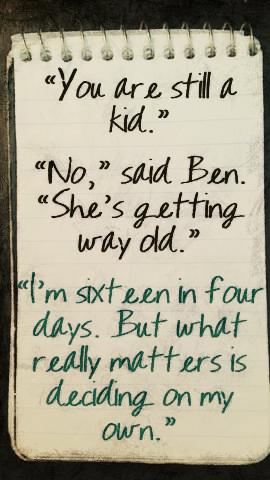 “You are still a
kid.”
“No,” said Ben.
“She’s getting
way old.”
“I’m sixteen in four
days. But what
really matters is
deciding on my
own.”